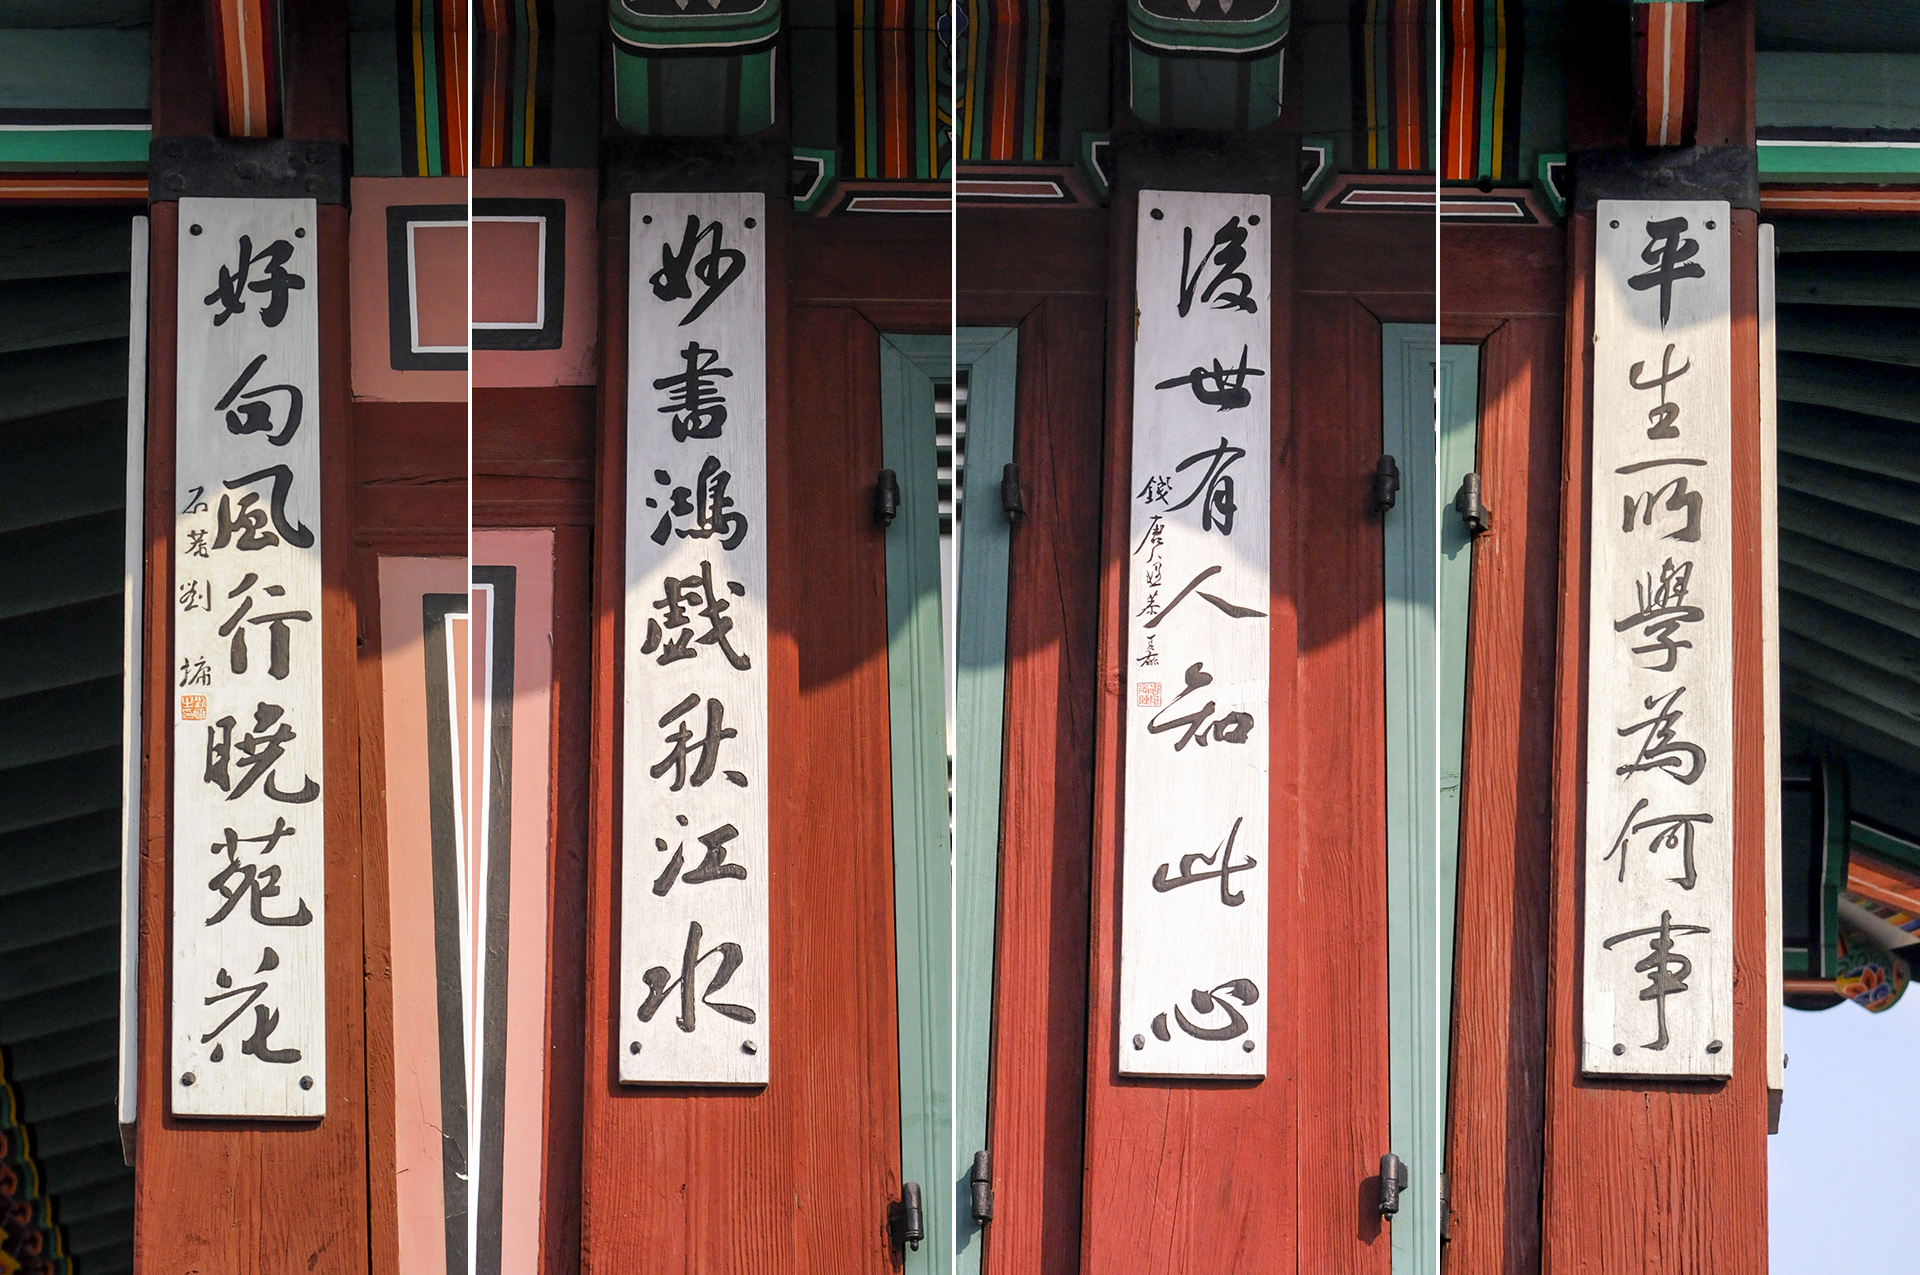 平生所學為何事
後世有人知此心
錢唐
妙書鴻戲秋江水
好句風行曉苑花
石菴劉墉